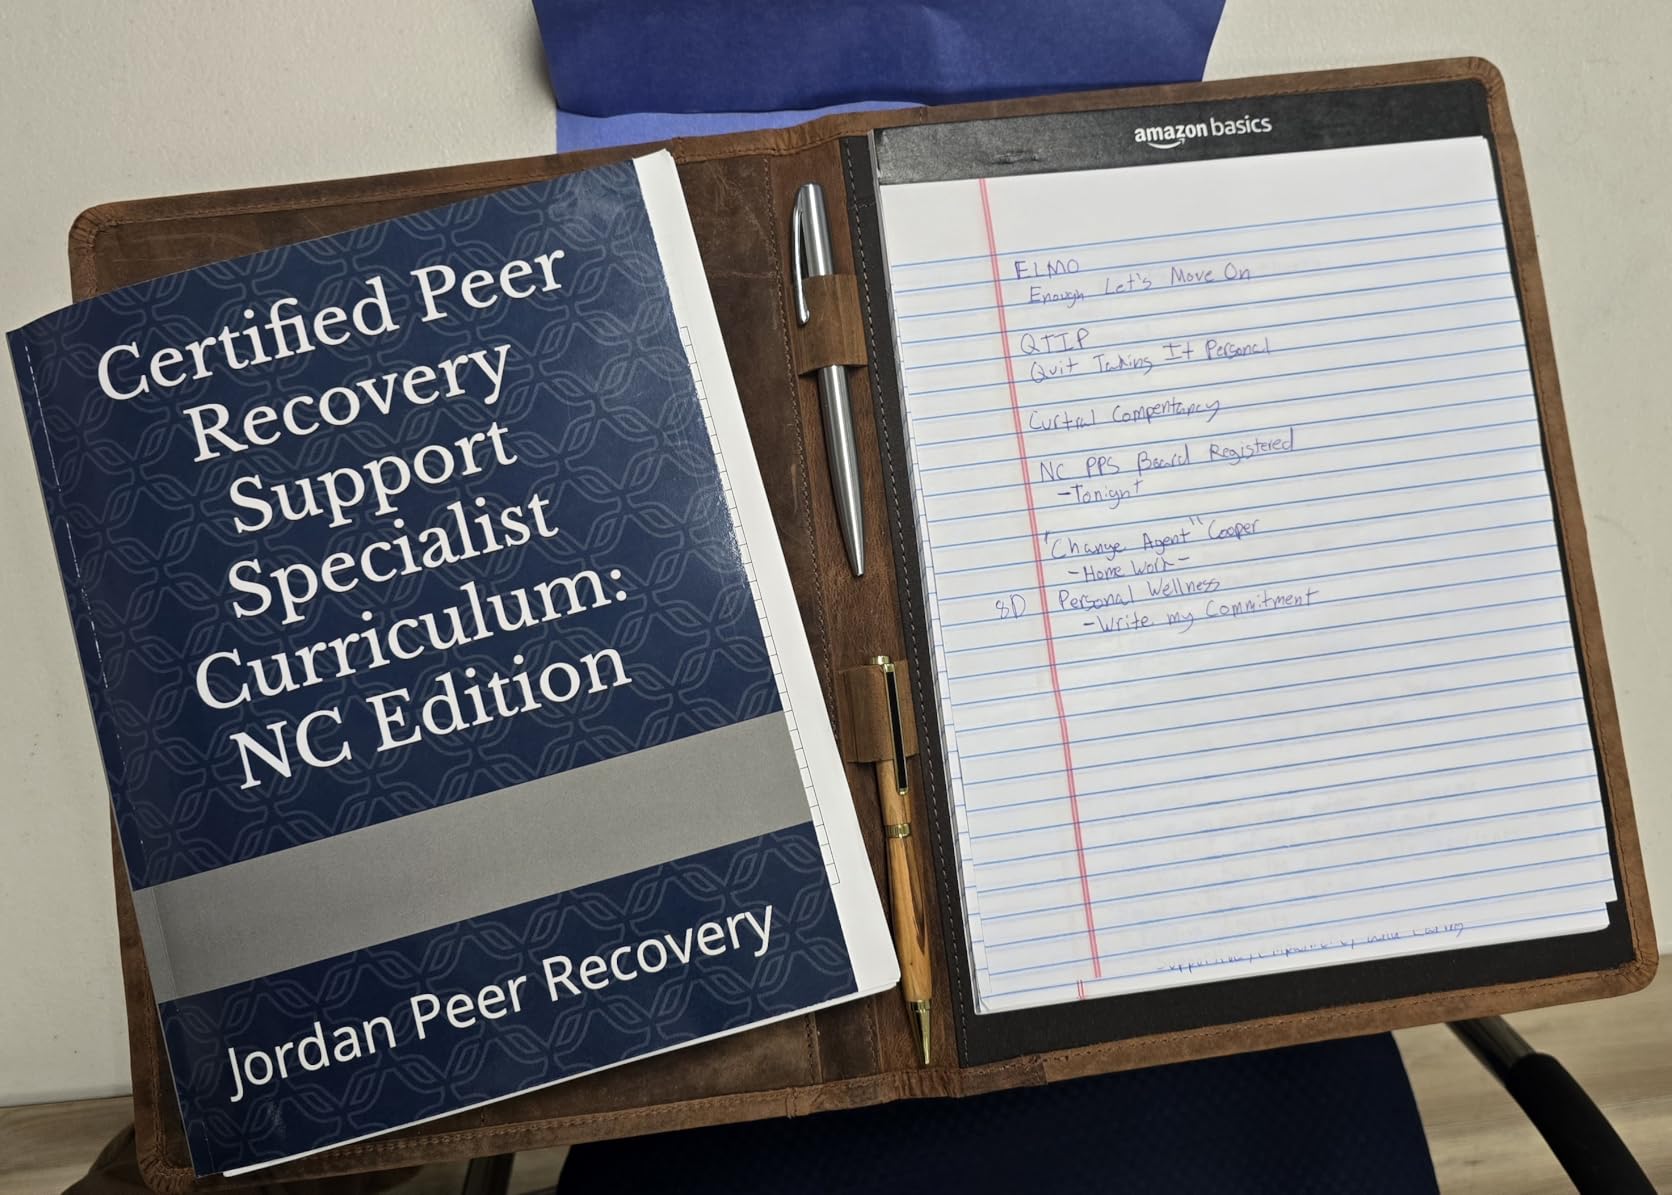 Certified Peer
Recovery
Support
Specialist
Curriculum:
NC Edition
Jordan Peer Recovery
amazon basics
ELMO
Enough Let's Move On
QTIP
Quit Taking It Personal
Curtral Compentancy
NC PPS Board Registered
-Tonight
"Change Agent" Cooper
-Home Work-
8D Personal Wellness
-Write my Commitment